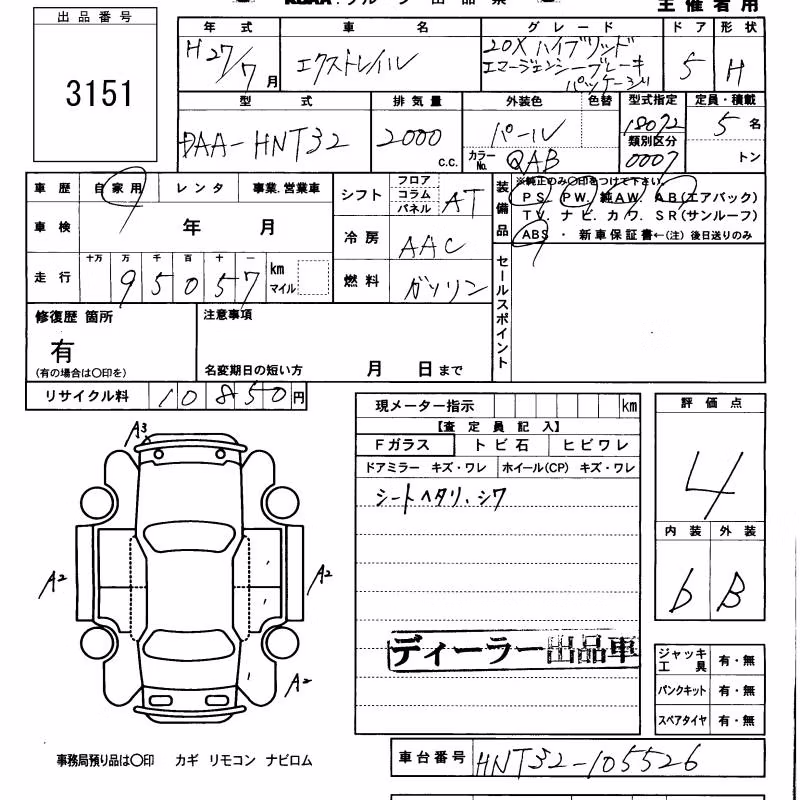 主催者用
出品番号
3151
年式 車名 グレード ドア 形状
H27/7月 エクストレイル 20X ハイブリッド エマージェンシーブレーキ パッケージ 5 H
型式 排気量 外装色 色替 型式指定 定員・積載
DAA-HNT32 2000 c.c. パール 18072 5名
カラーNo. QAB 類別区分 0007 トン
車歴 自家用 レンタ 事業.営業車
車検 年 月
走行 十万 万 千 百 十 一
95057 km マイル
シフト フロア コラム パネル AT
冷房 AAC
燃料 ガソリン
装備品 ※純正のみ〇印をつけて下さい。
PS. PW. 純AW. AB(エアバック)
TV. ナビ. カワ. SR(サンルーフ)
ABS ・ 新車保証書←(注) 後日送りのみ
セールスポイント
修復歴 箇所
有
(有の場合は〇印を)
注意事項
名変期日の短い方 月 日まで
リサイクル料 10850円
現メーター指示 km
【査定員記入】
Fガラス トビ石 ヒビワレ
ドアミラー キズ・ワレ ホイール(CP) キズ・ワレ
シートヘタリ、シワ
評価点
4
内装 外装
b B
A3
A2 A2
A2
ディーラー出品車
ジャッキ工具 有・無
パンクキット 有・無
スペアタイヤ 有・無
事務局預り品は〇印 カギ リモコン ナビロム
車台番号 HNT32-105526